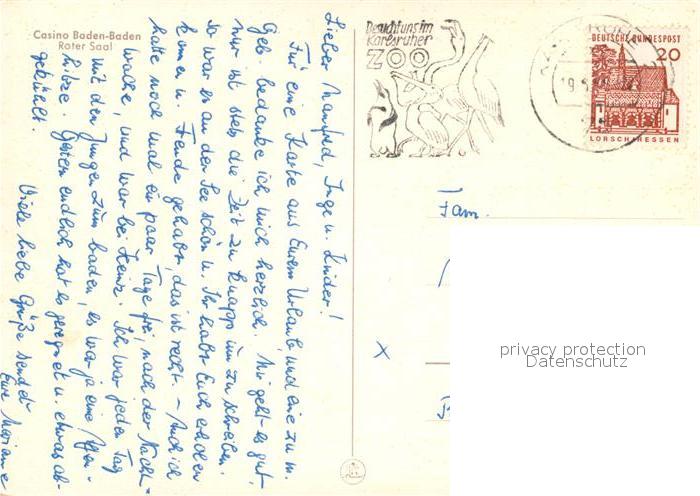 Casino Baden-Baden
Roter Saal
Lieber Manfred, Inge u. Kinder!
Für eine Karte aus Eurem Urlaub, und eine zu m.
Geb. bedanke ich mich herzlich. Mir geht es gut,
nur ist stets die Zeit zu knapp um zu schreiben.
So war es an der See schön u. Ihr habt Euch erholen
können u. Freude gehabt, das ist recht – Auch ich
hatte noch mal ein paar Tage frei, nach der Nacht-
wache, und war bei Heinz. Ich war jeden Tag
mit den Jungen zum baden, es war ja eine
hitze. Gestern endlich hat es geregnet u. etwas ab-
gekühlt.
Viele liebe Grüße sendet
Eure Marianne
Besucht uns im
Karlsruher
ZOO
DEUTSCHE BUNDESPOST
20
LORSCH/HESSEN
Fam.
x
privacy protection
Datenschutz